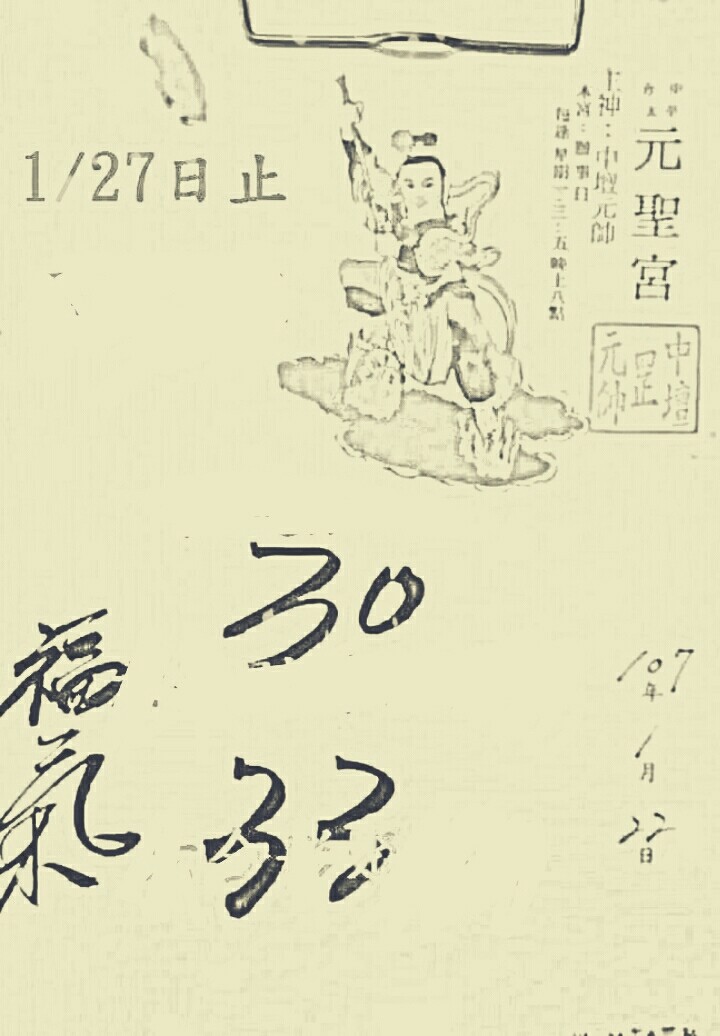 1/27日止
元聖宮
主神：中壇元帥
本宮：辦事日
每逢星期一．三．五晚上八點
中壇
元帥
30
33
福氣
107年
1月
22日